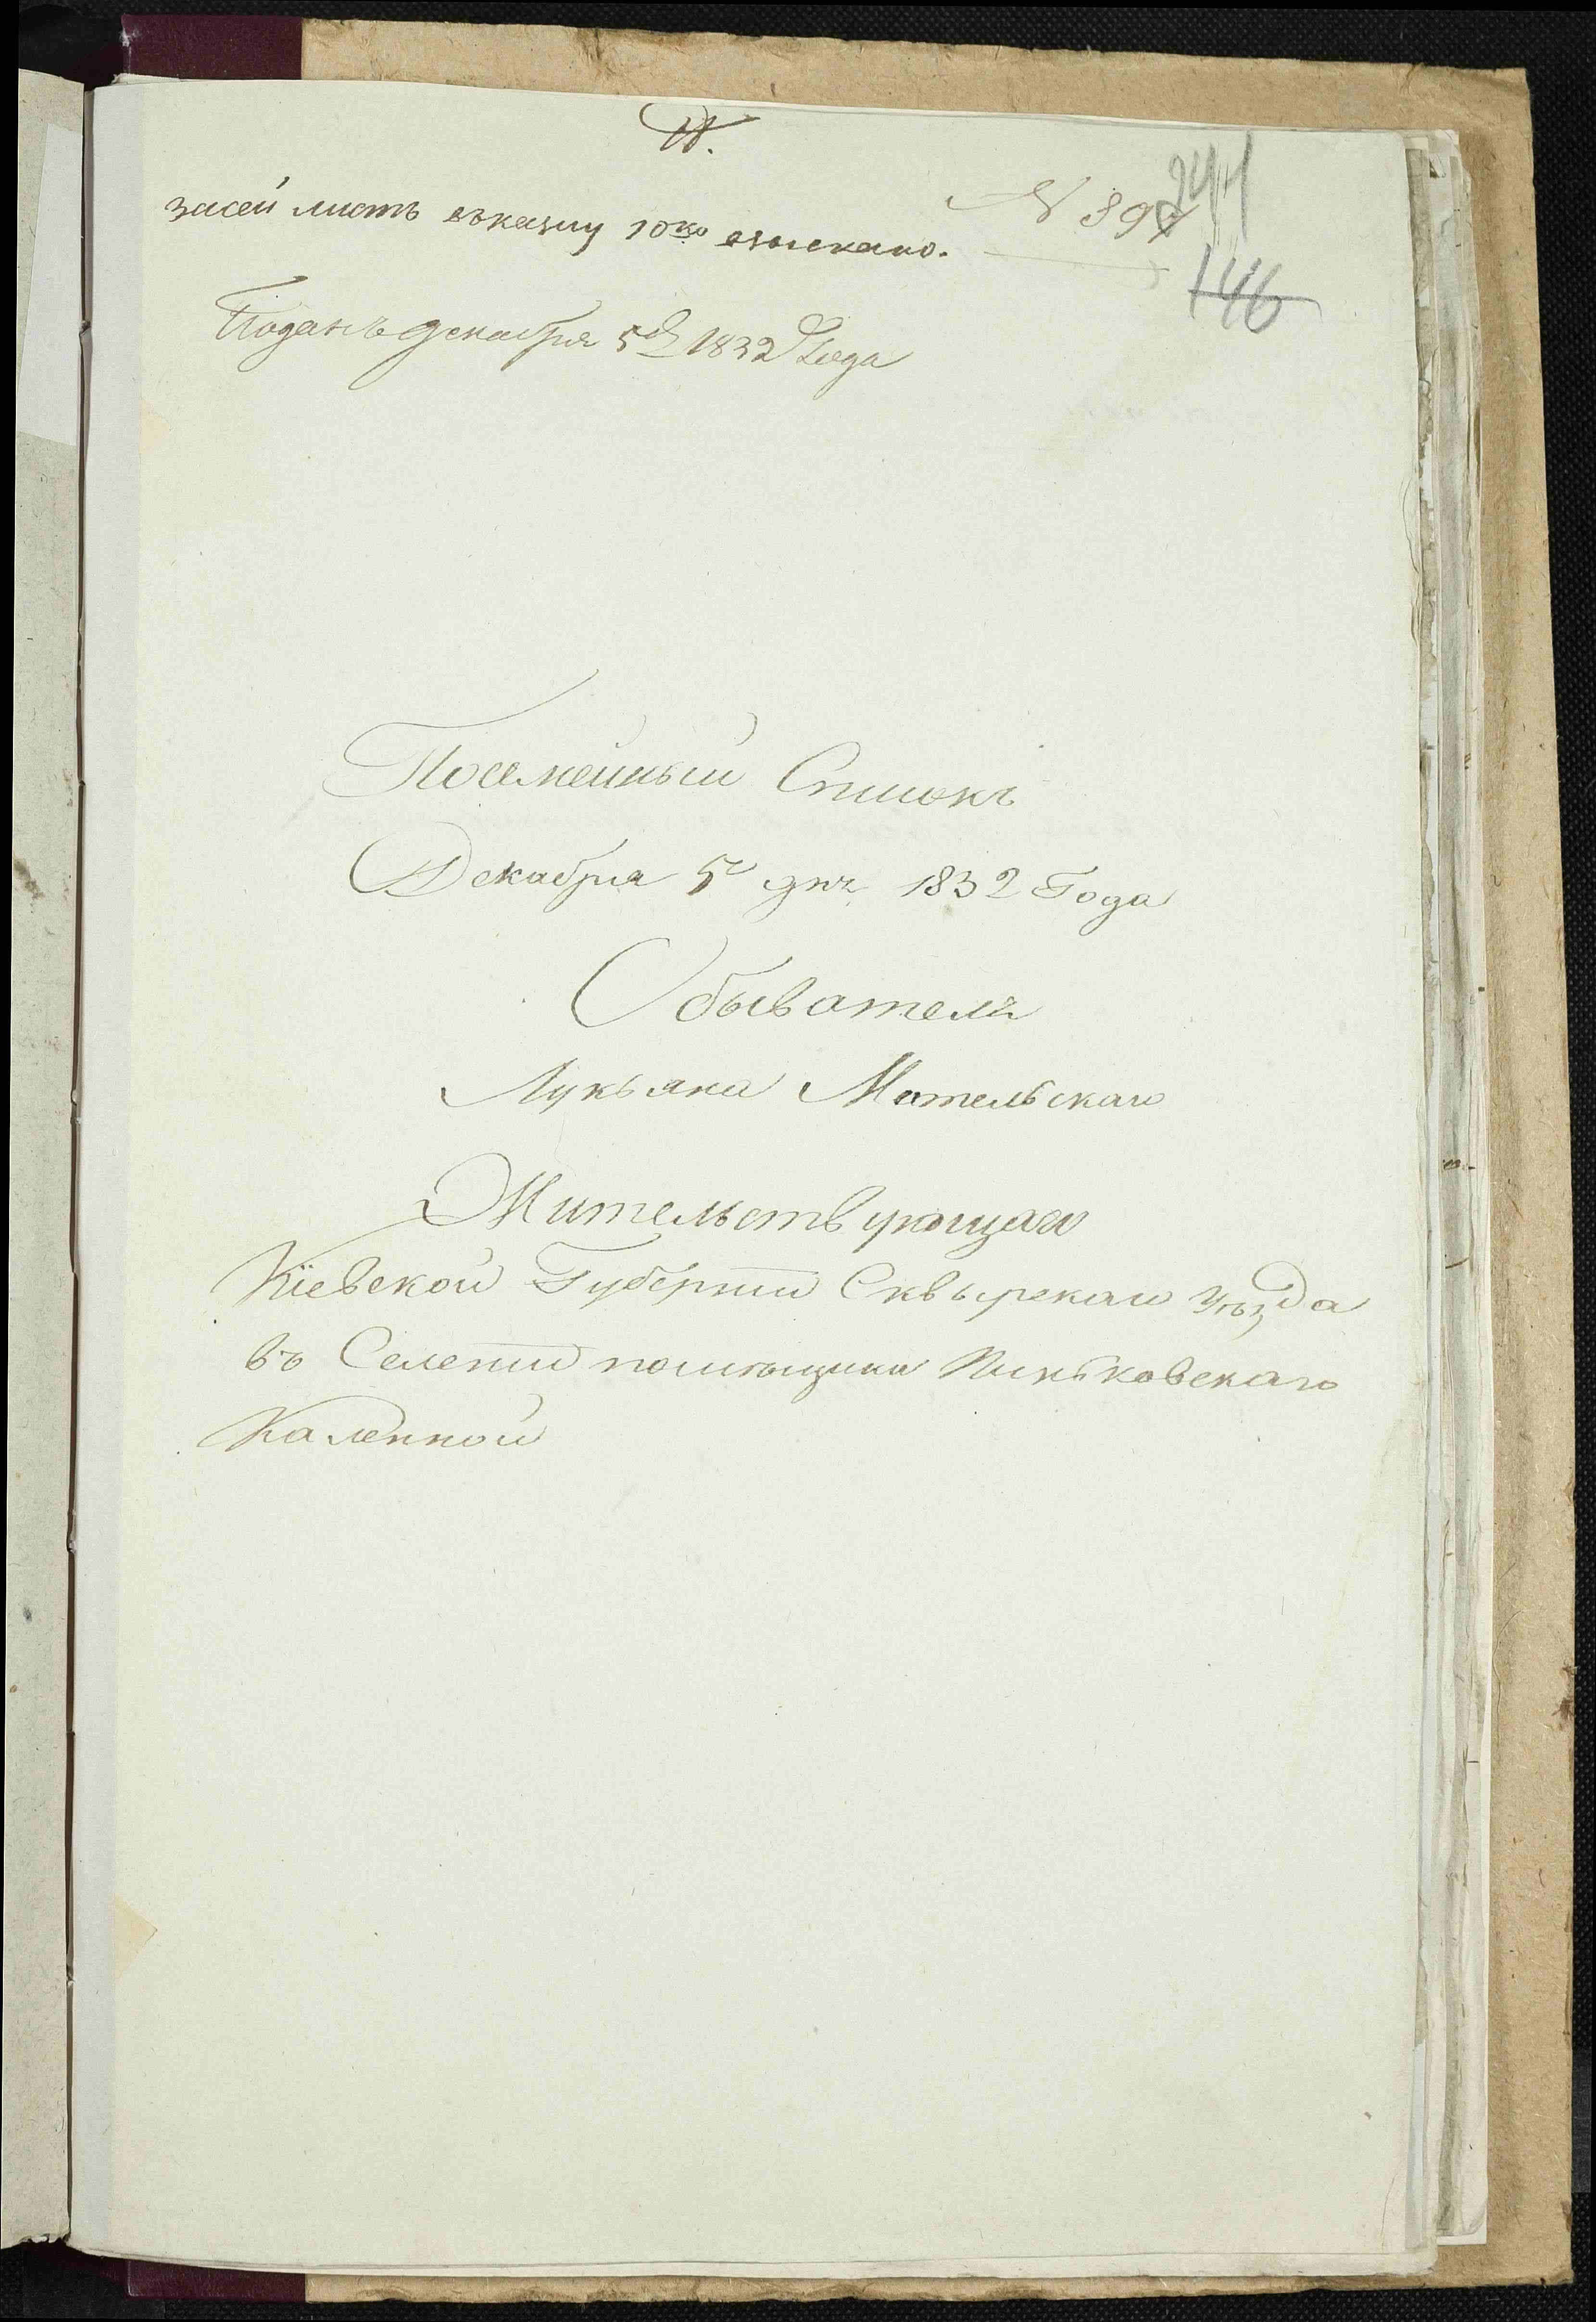 засей листъ вказну 10 ко взыскано.
№ 897
241
146
Поданъ декабря 5 д 1832 Года
Посемейный Списокъ
Декабря 5 дня 1832 Года
Обывателя
Лукьяна Мотельскаго
Жительствующаго
Кіевской Губерніи Сквырскаго уѣзда
въ Селеніи помѣщика Пинковскаго
Каленной